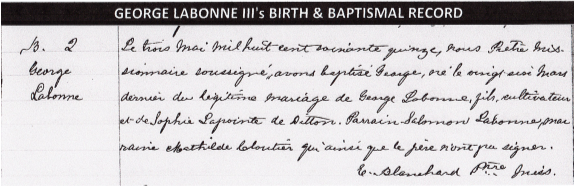 GEORGE LABONNE III's BIRTH & BAPTISMAL RECORD
B. 2
George
Labonne
Le trois Mai mil huit cent soixante quinze, nous Prêtre Mis-
sionnaire soussigné, avons baptisé George, né le vingt six Mars
dernier du légitime mariage de George Labonne, fils, cultivateur
et de Sophie Lapointe de Ditton. Parrain Salomon Labonne, mar
raine Mathilde Cloutier qui ainsi que le père n'ont pu signer.
E. Blanchard Ptre Miss.